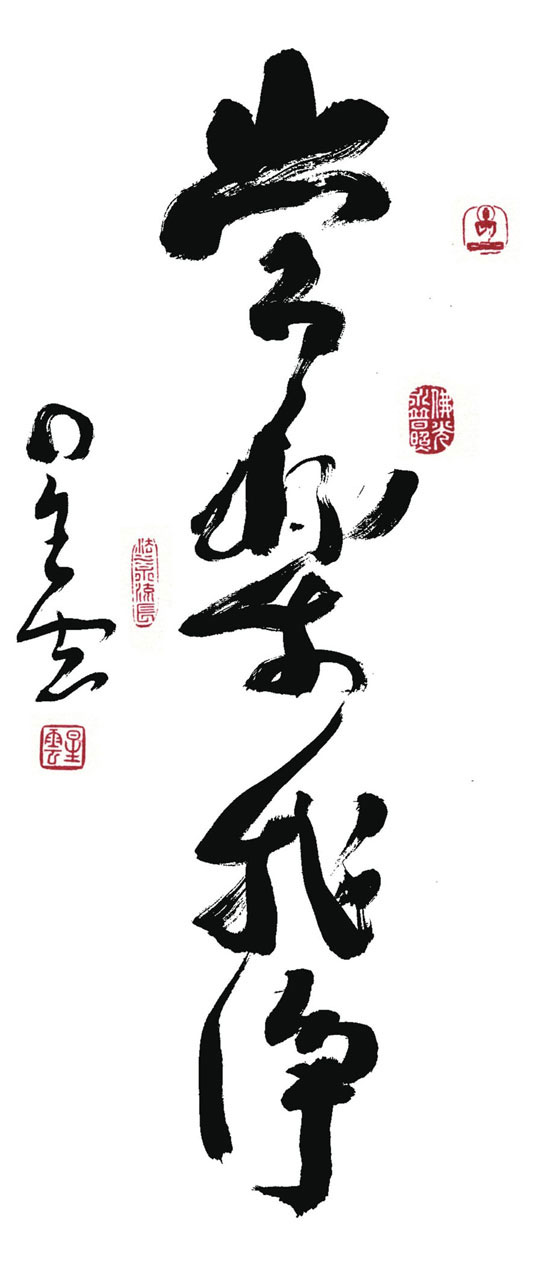 常樂我淨
佛光
普照
法水流長
星雲
星雲